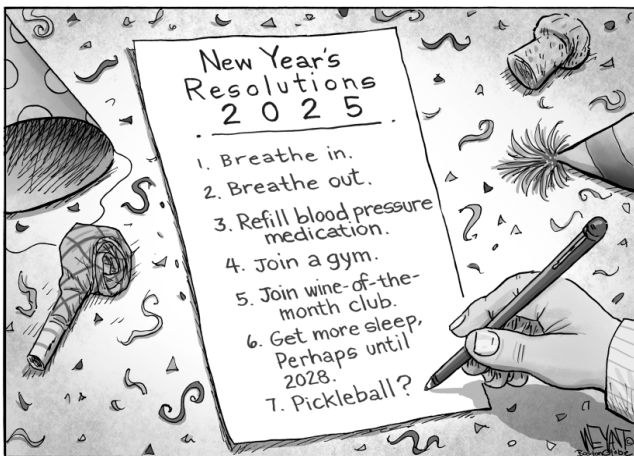 New Year's
Resolutions
2025
1. Breathe in.
2. Breathe out.
3. Refill blood pressure
medication.
4. Join a gym.
5. Join wine-of-the-
month club.
6. Get more sleep,
Perhaps until
2028.
7. Pickleball?
WEYANT©
Boston Globe